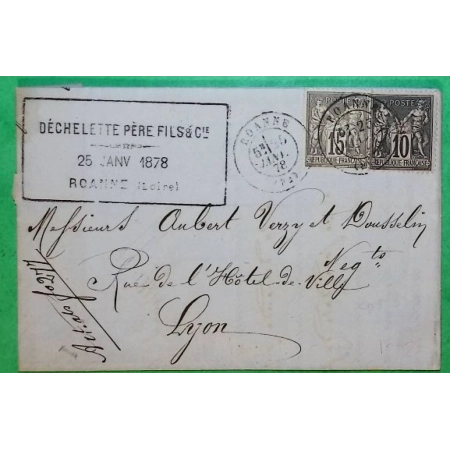 DÉCHELETTE PÈRE FILS & Cie
25 JANV 1878
ROANNE (Loire)
ROANNE
JANV.
78
ROANNE
POSTE
15
REPUBLIQUE FRANÇAISE
10
REPUBLIQUE FRANÇAISE
Messieurs Aubert Verzy et Dousselin
Negts
Rue de l'Hôtel de Ville
Lyon